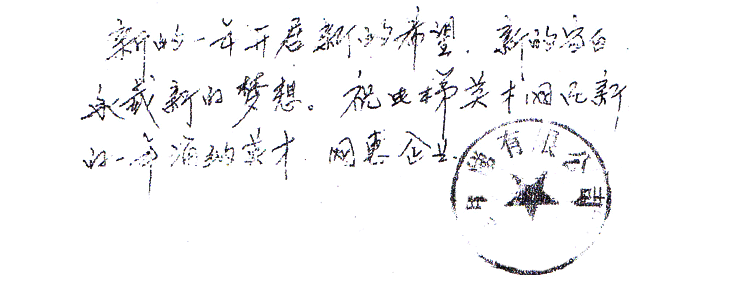 新的一年开启新的希望，新的空白
承载新的梦想。祝 英才网在新
的一年 纳英才 网惠企业
有限